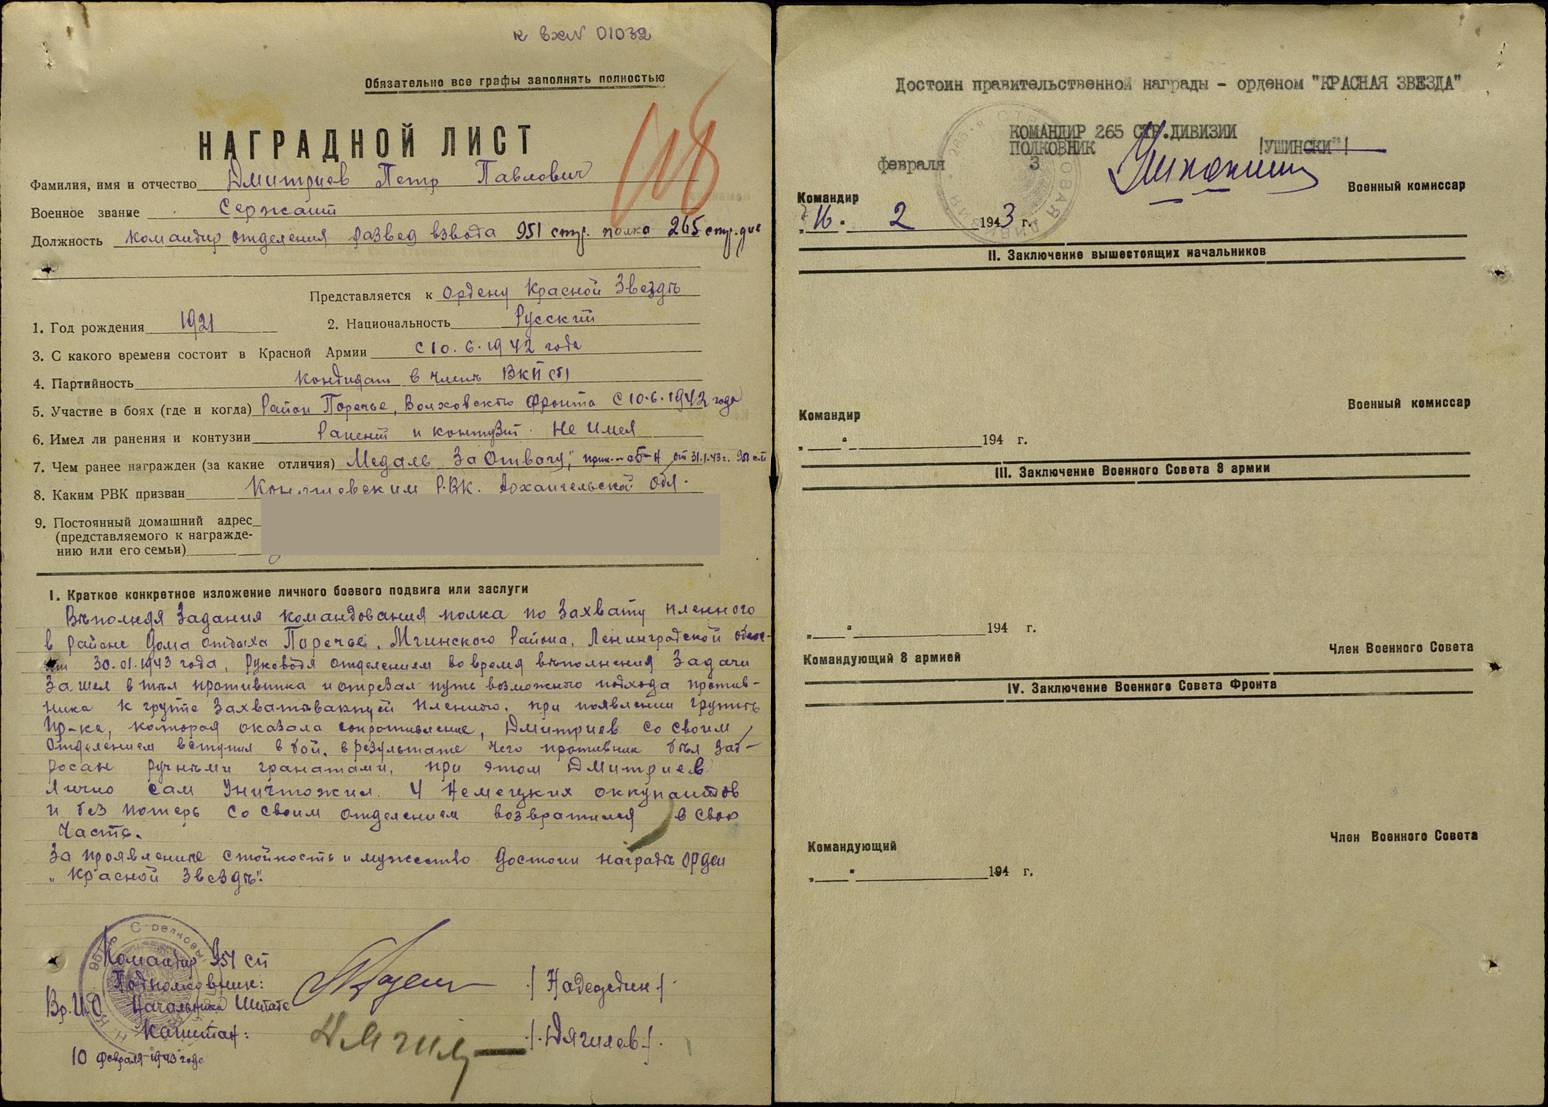 к вх№ 01032
Обязательно все графы заполнять полностью
НАГРАДНОЙ ЛИСТ
118
Фамилия, имя и отчество Дмитриев Петр Павлович
Военное звание Сержант
Должность командир отделения развед взвода 951 стр. полка 265 стр. див
Представляется к Ордену Красной Звезды
1. Год рождения 1921 2. Национальность Русский
3. С какого времени состоит в Красной Армии с 10.6.1942 года
4. Партийность Кондидат в члены ВКП(б)
5. Участие в боях (где и когда) Район Поречье, Волховского Фронта с 10.6.1942 года
6. Имел ли ранения и контузии Ранений и контузий Не имея
7. Чем ранее награжден (за какие отличия) Медаль "За Отвагу", от 31.1.43 г. 951 сп
8. Каким РВК призван РВК. Архангельской Обл.
9. Постоянный домашний адрес
(представляемого к награжде-
нию или его семьи)
I. Краткое конкретное изложение личного боевого подвига или заслуги
Выполняя Задания командования полка по Захвату пленного
в районе Дома отдыха Поречье, Мгинского Района, Ленинградской
30.01.1943 года, Руководя отделением во время выполнения Задачи
Зашел в тыл противника и отрезал путь возможного подхода против-
ника к группе Захватывающей пленного. при появлении группы
пр-ка, которая оказала сопротивление, Дмитриев со своим
Отделением вступил в бой, в результате чего противник был заб-
росан ручными гранатами, при этом Дмитриев
Лично сам Уничтожил 4 Немецких оккупантов
и без потерь со своим отделением возвратился в свою
Часть.
За проявление стойкость и мужество Достоин награды орден
"Красной Звезды".
Командир 951 сп
Подполковник:
Вр.И.О. Начальника Штаба
Капитан: /Дягилев/.
10 февраля 1943 года
Достоин правительственной награды - орденом "КРАСНАЯ ЗВЕЗДА"
КОМАНДИР 265 СТР.ДИВИЗИИ
ПОЛКОВНИК /УШИНСКИЙ/
февраля 3
Командир Военный комиссар
"16" 2 1943 г.
II. Заключение вышестоящих начальников
Командир Военный комиссар
" " 194 г.
III. Заключение Военного Совета 8 армии
" " 194 г.
Командующий 8 армией Член Военного Совета
IV. Заключение Военного Совета Фронта
Командующий Член Военного Совета
" " 194 г.